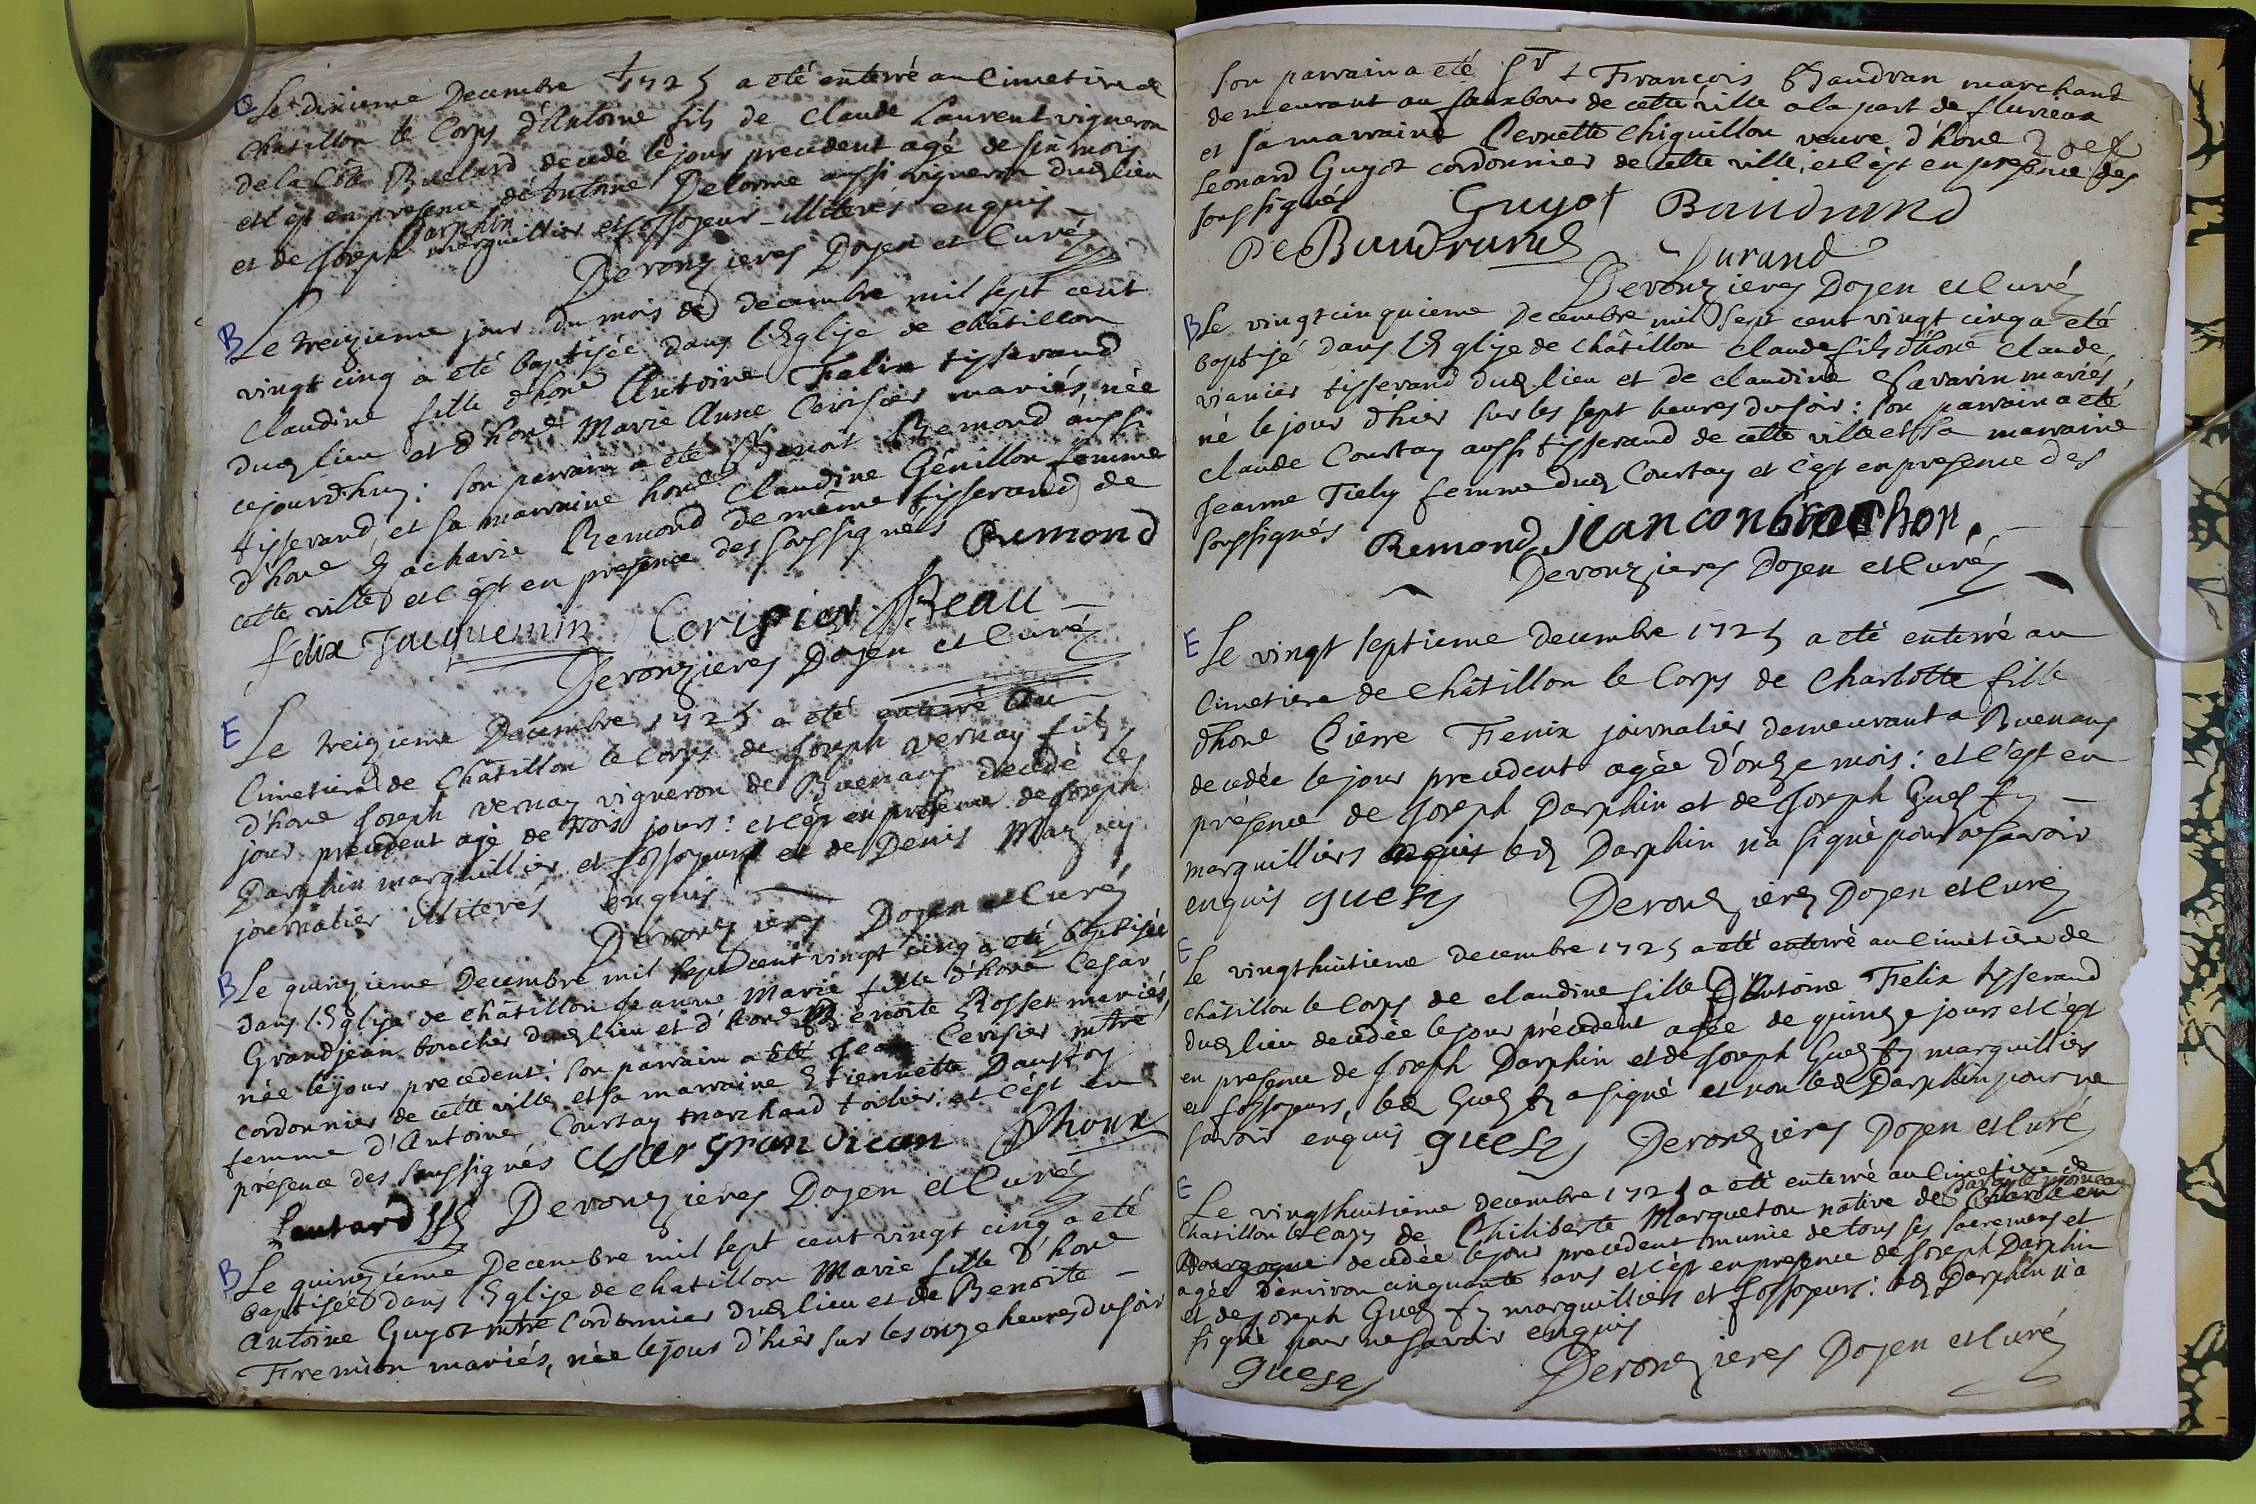 E Le dixieme Decembre 1725 a eté enterré au Cimetiere de
Châtillon le Corps d'Antoine fils de Claude Laurent vigneron
de la Côte decedé le jour precedent agé de six mois
et c'est en presence de Antoine Delorme aussi vigneron dud lieu
et de Joseph Darphin marguillier et fossoyeur illiterés enquis
Deronzieres Doyen et Curé
B Le treizieme jour du mois de decembre mil sept cent
vingt cinq a eté baptisée dans l'Eglise de Châtillon
Claudine fille d'hone Antoine Felix tisserand
dud lieu et d'hone Marie Anne Cerisier mariés née
cejourd'huy: son parrain a eté Benoit Remond aussi
tisserand et sa marraine hone Claudine Génillon femme
d'hone Zacharie Remond de même tisserand de
cette ville et c'est en presence des soussignés Remond
felix Jacquemin Cerisier Beau
Deronzieres Doyen et Curé
E Le treizieme Decembre 1725 a eté enterré au
Cimetiere de Châtillon le Corps de Joseph vernay fils
d'hone Joseph vernay vigneron de Buenans decedé le
jour precedent agé de trois jours: et c'est en presence de Joseph
Darphin marguillier et fossoyeur et de Denis
journalier illiterés enquis
Deronzieres Doyen et Curé
B Le quinzieme Decembre mil sept cent vingt cinq a eté baptisée
dans l'Eglise de châtillon Jeanne Marie fille d'hone Cesar
Grandjean boucher dud lieu et d'hone Benoite Rosset mariés,
née le jour precedent: son parrain a eté Jean Cerisier mtre
cordonnier de cette ville et sa marraine Etiennette
femme d'Antoine Courtay marchand et c'est en
présence des soussignés Cesar grandican
Deronzieres Doyen et Curé
B Le quinzième Decembre mil sept cent vingt cinq a eté
baptisée dans l'Eglise de chatillon Marie fille d'hone
Antoine Guyot mtre Cordonnier dud lieu et de Benoite
Fremion mariés, née le jour d'hier sur les onze heures du soir
son parrain a eté Sr François Baudran marchand
demeurant au fauxbour de cette ville a la part de
et sa marraine Pernette Chiquillon veuve d'hone
Leonard Guyot cordonnier de cette ville, et c'est en presence des
soussignés Guyot Baudrand
De Baudrand Durand
Deronzieres Doyen et Curé
B Le vingtcinquieme Decembre mil sept cent vingt cinq a eté
baptisé dans l'Eglise de Châtillon Claude fils d'hone Claude
viancier tisserand dud lieu et de claudine Savarin mariés,
né le jour d'hier sur les sept heures du soir: son parrain a eté
Claude Courtay aussi tisserand de cette ville et sa marraine
Jeanne femme dud Courtay et c'est en presence des
soussignés Remond
Deronzieres Doyen et Curé
E Le vingt septieme decembre 1725 a eté enterré au
Cimetiere de Châtillon le Corps de Charlotte fille
d'hone Pierre Fenix journalier demeurant a Buenans
decedée le jour precedent agée d'onze mois: et c'est en
présence de Joseph Darphin et de Joseph Guesty
marguilliers led Darphin n'a signé pour ne savoir
enquis guesty Deronzieres Doyen et Curé
E Le vingthuitieme decembre 1725 a eté enterré au Cimetiere de
châtillon le Corps de claudine fille D'Antoine Felix tysserand
dud lieu decedée le jour précedent agée de quinze jours et c'est
en presence de Joseph Darphin et de Joseph Guesty marguilliers
et fossoyeurs, led Guesty a signé et non led Darphin pour ne
savoir enquis guesty Deronzieres Doyen et Curé
E Le vingthuitieme decembre 1725 a eté enterré au Cimetiere de
Chatillon le Corps de Philiberte Marqueton native de
Bourgogne decedée le jour precedent munie de tous ses sacremens et
agée d'environ cinquante ans et c'est en presence de Joseph Darphin
et de Joseph Guesty marguilliers et fossoyeurs: led Darphin n'a
signé pour ne savoir enquis
guesty Deronzieres Doyen et Curé